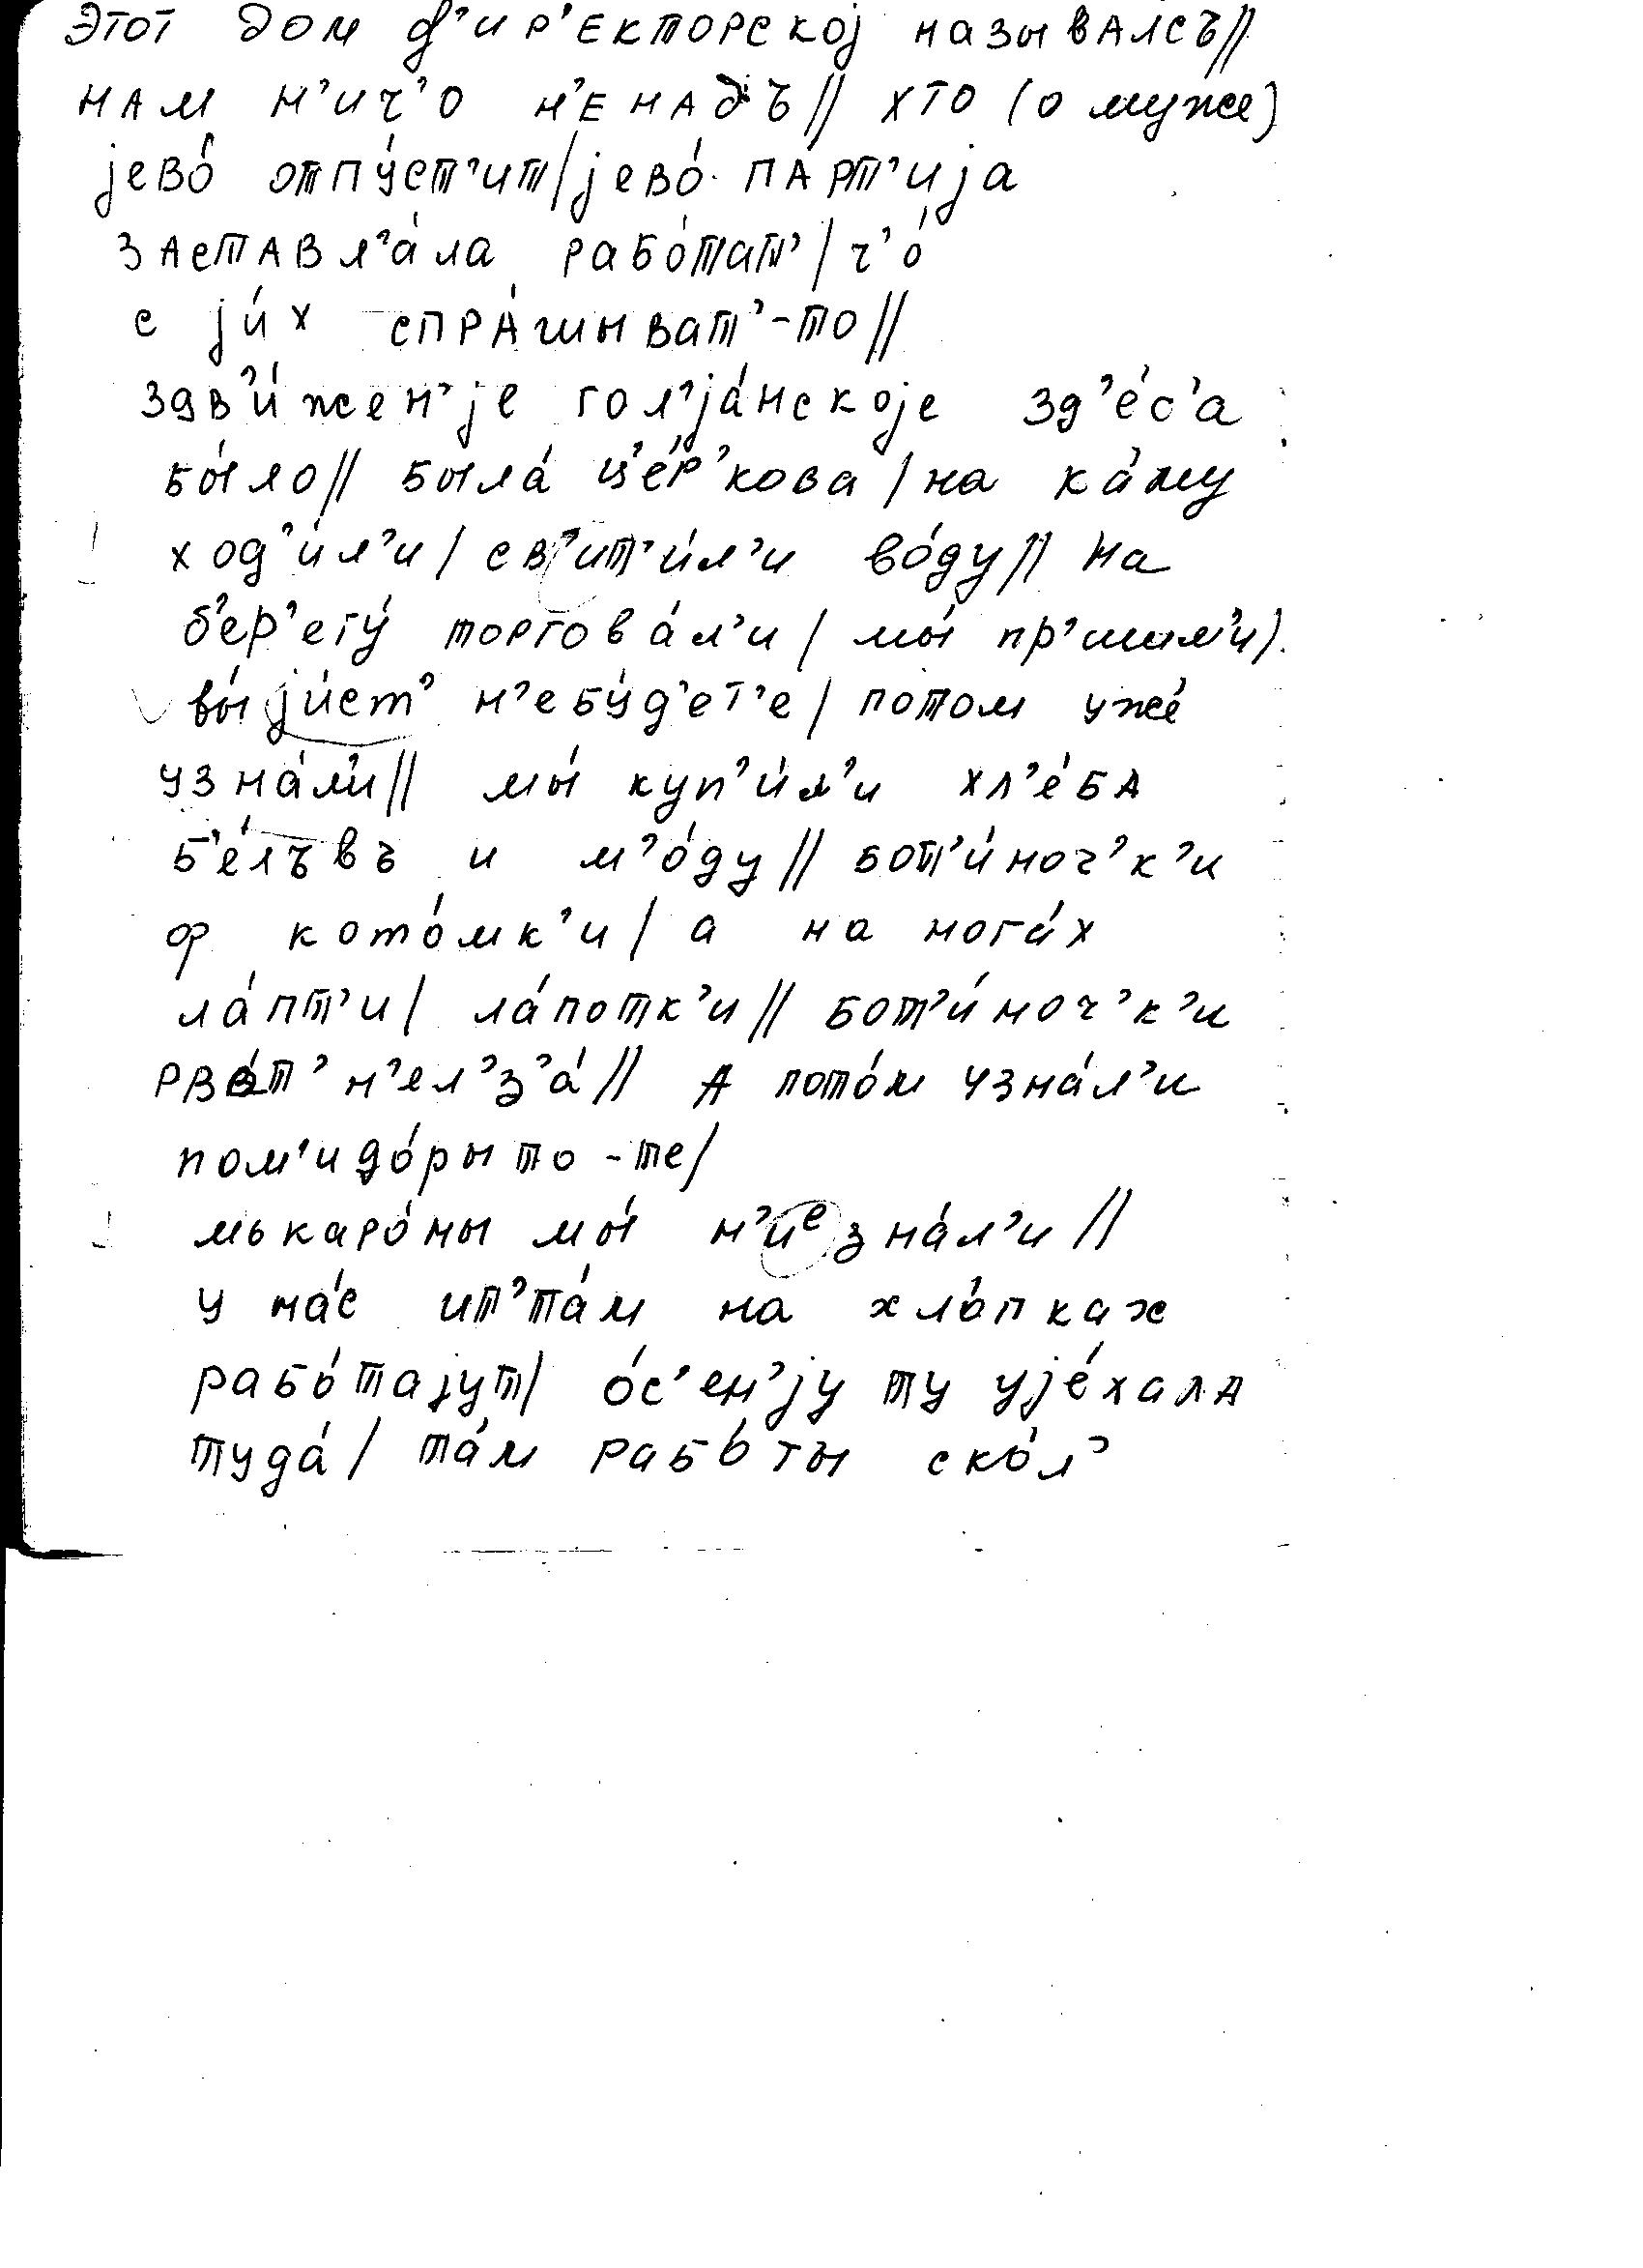 этот дом д'ир'екторској называлсъ//
нам н'ич'о н'е надъ// хто (о муже)
јево́ отпу́ст'ит/јево́ па́рт'ија
заставл'а́ла рабо́тат'/ч'о́
с ји́х спра́шыват'-то//
здв'и́жен'је гол'ја́нскоје зд'е́с'а
бы́ло// была́ ц'е́р'кова/на ка́му
ход'и́л'и/св'ит'и́л'и во́ду// на
б'ер'егу́ торгова́л'и/мы́ пр'ишл'и/
вы́ји́ст' н'е бу́д'ет'е/потом уже́
узна́л'и// мы́ куп'и́л'и хл'е́ба
б'е́лъвъ и м'о́ду// бот'и́ноч'к'и
ф кото́мк'и/а на нога́х
ла́пт'и/ла́потк'и// бот'и́ноч'к'и
рва́т' н'ел'з'а́// а пото́м узна́л'и
пом'идо́ры то-те/
мъкаро́ны мы́ н'иᵉзна́л'и//
у на́с ит'та́м на хло́пках
рабо́тајут/о́с'ен'ју ту ује́хала
туда́/та́м рабо́ты ско́л'